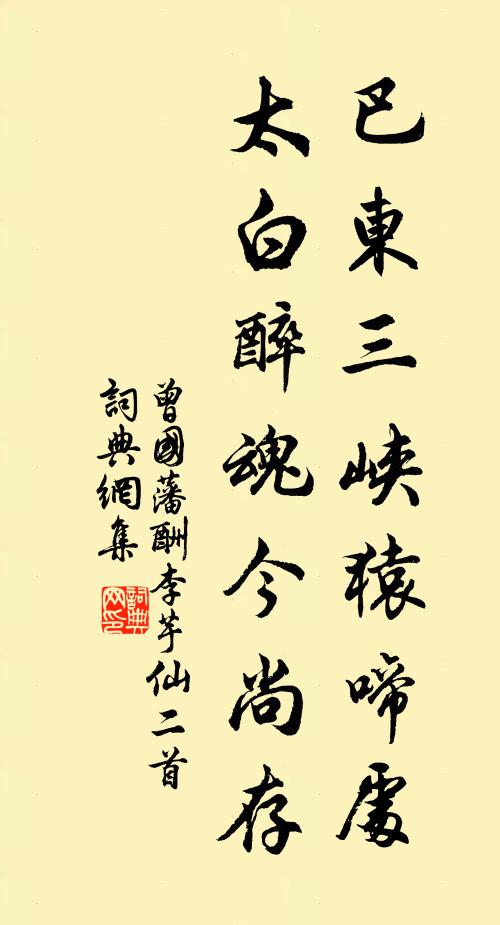 巴東三峽猿啼處
太白醉魂今尚存
曾國藩酬李芋仙二首
詞典網集
詞典网印